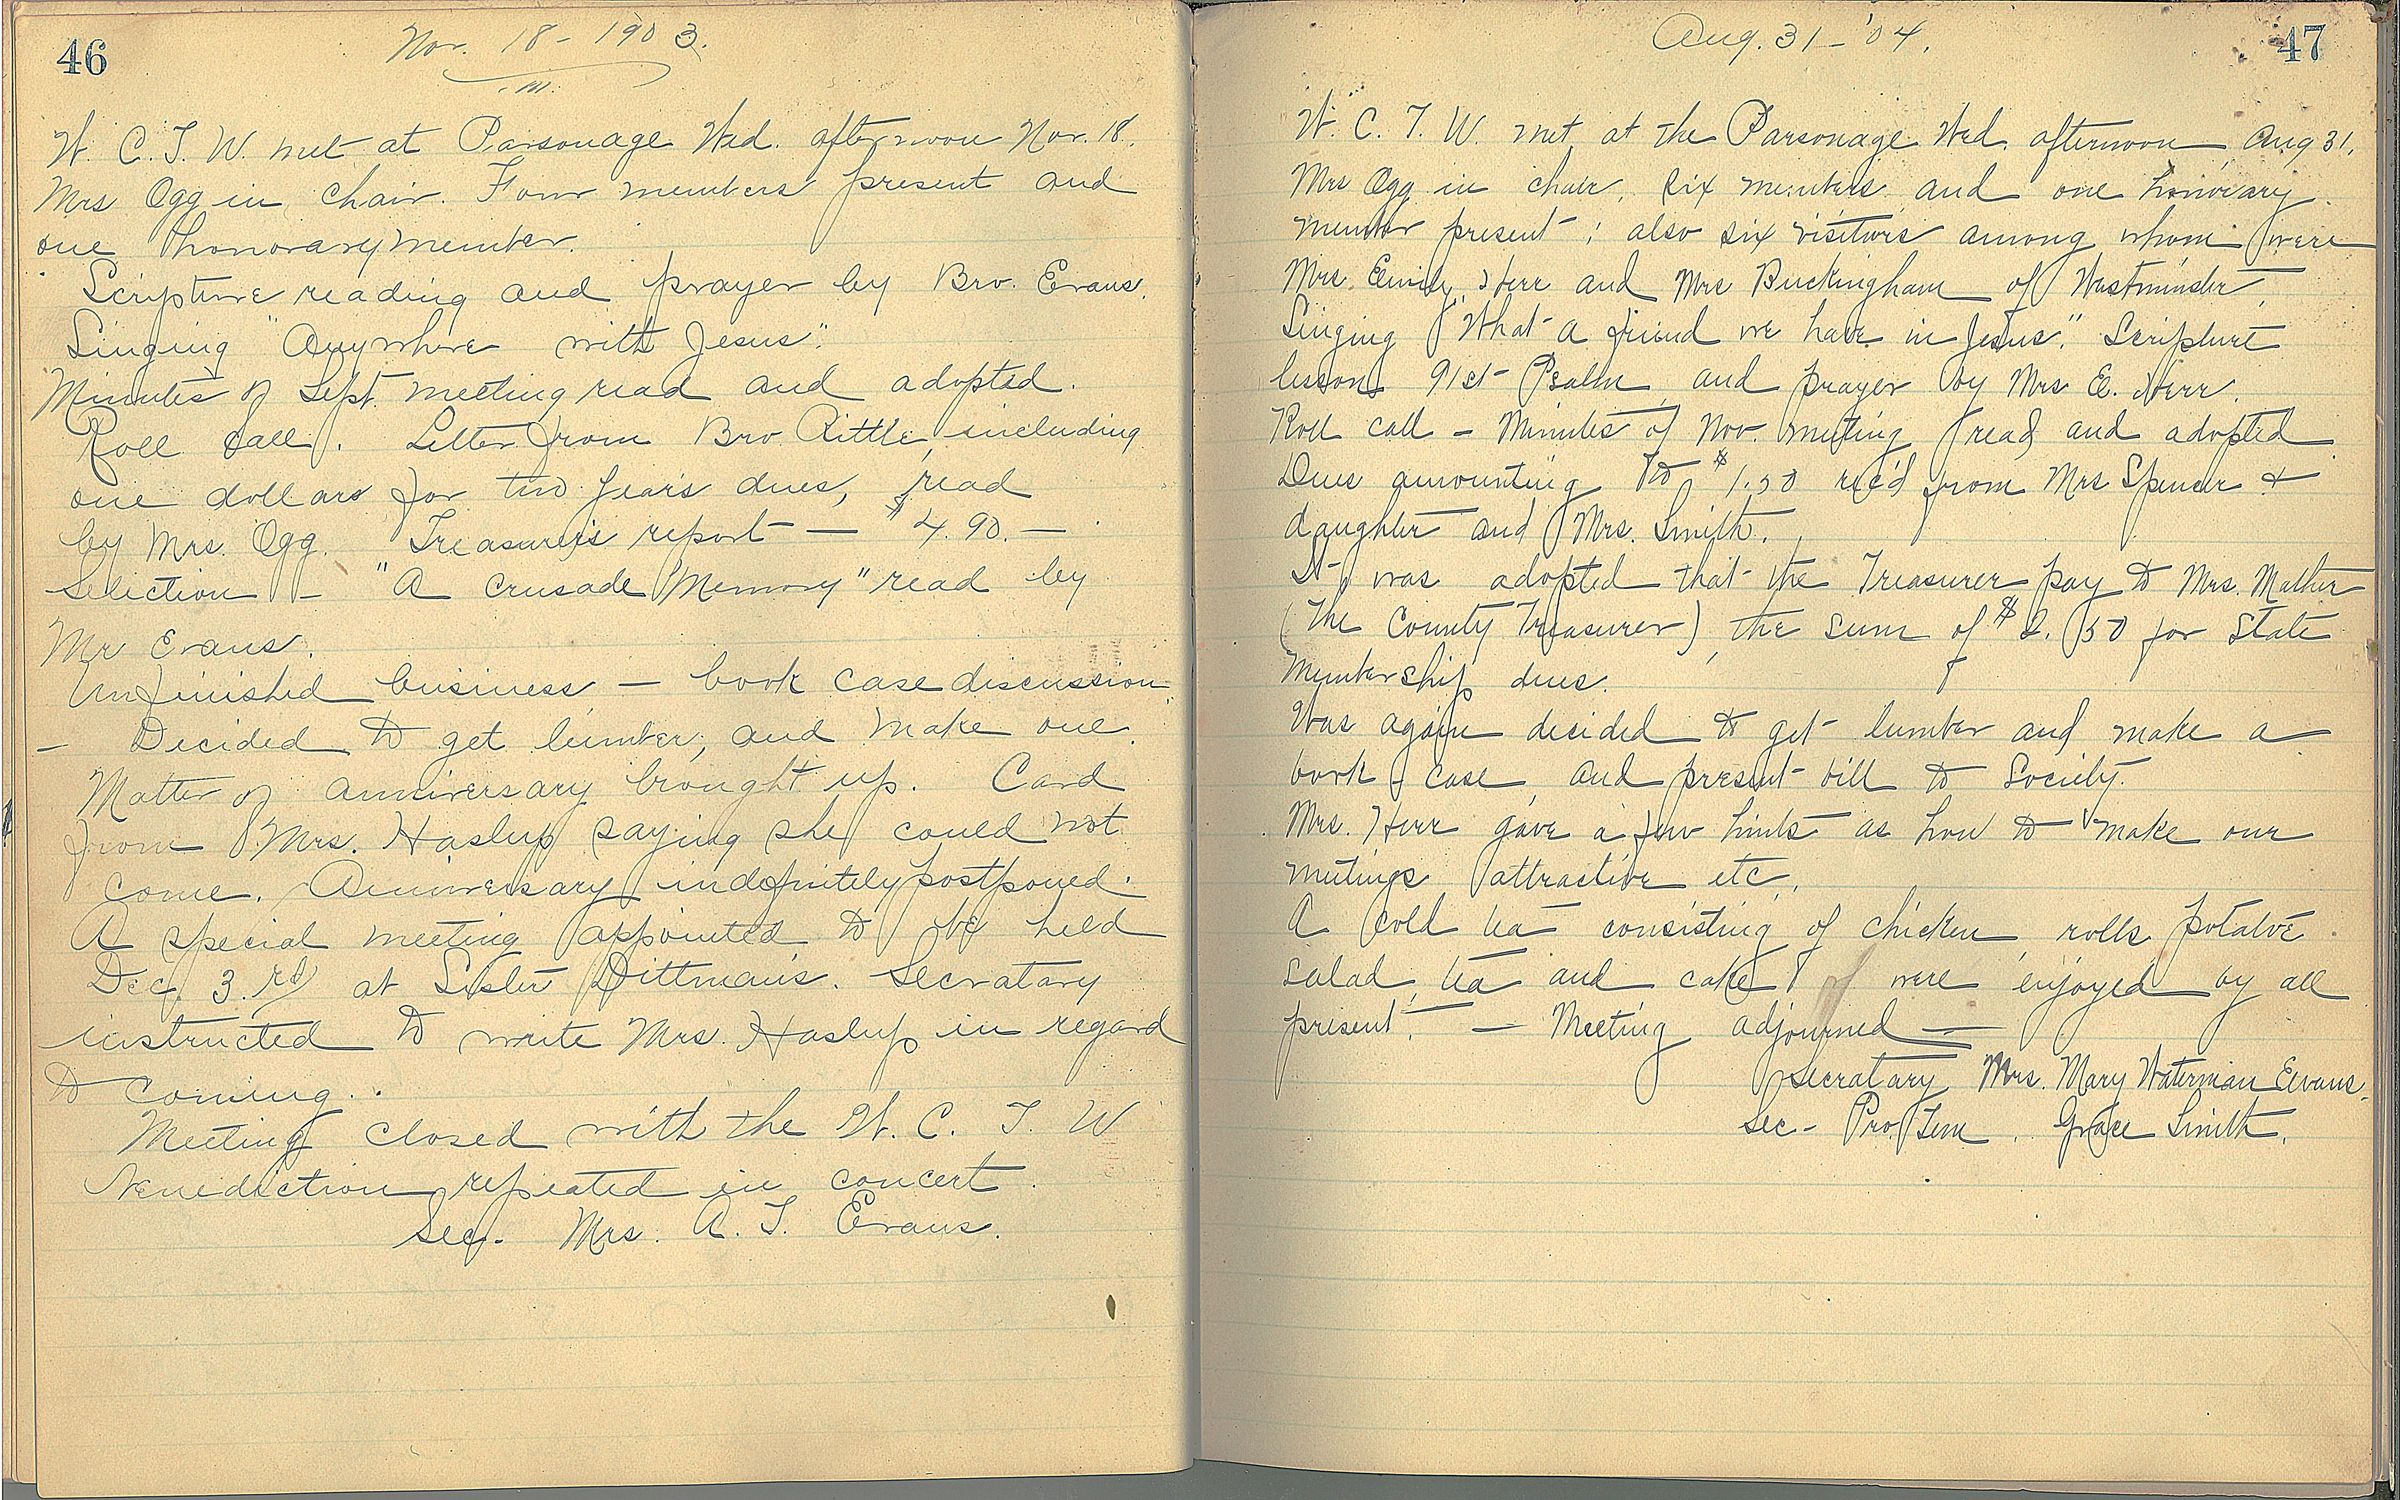 46
Nov. 18 - 1903.
W. C. T. W. met at Parsonage Wed. afternoon Nov. 18.
Mrs Ogg in chair. Four members present and
one honorary member.
Scripture reading and prayer by Bro. Evans.
Singing "Anywhere with Jesus."
Minutes of Sept. meeting read and adopted.
Roll call. Letter from Bro. Rittle including
one dollars for two years dues, read
by Mrs. Ogg. Treasurer's report — $4.90. —
Selection — "A Crusade Memory" read by
Mr Evans.
Unfinished business — book case discussion
— Decided to get lumber, and make one.
Matter of anniversary brought up. Card
from Mrs. Haslup saying she could not
come. Anniversary indefinitely postponed.
A special meeting appointed to be held
Dec. 3.rd at Sister Dittman's. Secratary
instructed to write Mrs. Haslup in regard
to coming.
Meeting closed with the W. C. T. W
Benediction repeated in concert.
Sec. Mrs. A. T. Evans.
47
Aug. 31 - '04.
W. C. T. W. met at the Parsonage Wed. afternoon Aug 31,
Mrs Ogg in chair. Six members and one honorary
member present; also six visitors among whom were
Mrs. Emily Herr and Mrs Buckingham of Westminster.
Singing "What a friend we have in Jesus." Scripture
lesson 91st Psalm and prayer by Mrs E. Herr.
Roll call — Minutes of Nov. meeting read and adopted
Dues amounting to $1.50 rec'd from Mrs Spencer &
daughter and Mrs. Smith.
It was adopted that the Treasurer pay to Mrs. Mather
(the County Treasurer), the sum of $2.50 for State
Membership dues.
Was again decided to get lumber and make a
book case and present bill to Society.
Mrs. Herr gave a few hints as how to make our
meetings attractive etc.
A cold tea consisting of chicken rolls potatoe
salad, tea and cake were enjoyed by all
present. — Meeting adjourned —
Secratary Mrs. Mary Waterman Evans.
Sec - Pro Tem. Grace Smith.